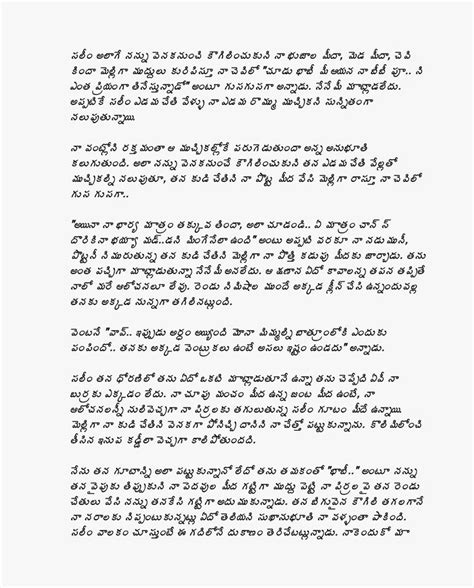 సలీం అలాగే నన్ను వెనకనుంచి కౌగిలించుకుని నా భుజాల మీదా, మెడ మీదా, చెవి
కిందా మెల్లిగా ముద్దులు కురిపిస్తూ నా చెవిలో "చూడు భాభీ మీ ఆయన నా బీబీ పూ.. ని
ఎంత ప్రియంగా తినేస్తున్నాడో" అంటూ గుసగుసగా అన్నాడు. నేనేమీ మాట్లాడలేదు.
అప్పటికే సలీం ఎడమ చేతి వేళ్ళు నా ఎడమ రొమ్ము ముచ్చికని సున్నితంగా
నలుపుతున్నాయి.
నా వంట్లోని రక్తమంతా ఆ ముచ్చికల్లోకే పరుగెడుతుందా అన్న అనుభూతి
కలుగుతుంది. అలా నన్ను వెనకనుంచే కౌగిలించుకుని తన ఎడమచేతి వేళ్లతో
ముచ్చికల్ని నలుపుతూ, తన కుడి చేతిని నా పొట్ట మీద వేసి మెల్లిగా రాస్తూ నా చెవిలో
గుస గుసగా..
"అయినా నా భార్య మాత్రం తక్కువ తిందా, అలా చూడండి.. ఏ మాత్రం చాన్స్
దొరికినా భయ్యా మడ్..డని మింగేసేలా ఉంది" అంటు అప్పటి వరకూ నా నడుమునీ,
పొట్టనీ నిమురుతున్న తన కుడి చేతిని మెల్లిగా నా పొత్తి కడుపు మీదకు జార్చాడు. తను
అంత పచ్చిగా మాట్లాడుతున్నా నేనేమీ అనలేదు. ఆ క్షణాన ఏదో కావాలన్న తపన తప్పితే
నాలో మరే ఆలోచనలూ లేవు. రెండు నిమిషాల ముందే అక్కడ క్లీన్ చేసి ఉన్నందువల్ల
తనకు అక్కడ నున్నగా తగిలినట్లుంది.
వెంటనే "వావ్.. ఇప్పుడు అర్థం అయ్యింది మోనా మిమ్మల్ని బాత్రూంలోకి ఎందుకు
పంపిందో.. తనకు అక్కడ వెంట్రుకలు ఉంటే అసలు ఇష్టం ఉండదు" అన్నాడు.
సలీం తన ధోరణిలో తను ఏదో ఒకటి మాట్లాడుతూనే ఉన్నా తను చెప్పేది ఏవీ నా
బుర్రకు ఎక్కడం లేదు. నా చూపు మంచం మీద ఉన్న జంట మీద ఉంటే, నా
ఆలోచనలన్నీ నులివెచ్చగా నా పిర్రలకు తగులుతున్న సలీం గూటం మీదే ఉన్నాయి.
మెల్లిగా నా చేతిని వెనకగా పోనిచ్చి దానిని నా చేత్తో పట్టుకున్నాను. కొలిమిలోంచి
తీసిన ఇనుప కడ్డీలా వెచ్చగా కాలిపోతుందది.
నేను తన గూటాన్ని అలా పట్టుకున్నానో లేదో తను తమకంతో "భాభీ.." అంటూ నన్ను
తన వైపుకు తిప్పుకుని నా పెదవుల మీద గట్టిగా ముద్దు పెట్టి నా పిర్రల పై తన రెండు
చేతులు వేసి నన్ను తనకేసి గట్టిగా అదుముకున్నాడు. తన బిగువైన కౌగిలి తగలగానే
నా నరాలకు నిప్పంటుకున్నట్లు ఏదో తెలియని సుఖానుభూతి నా వళ్ళంతా పాకింది.
సలీం వాలకం చూస్తుంటే ఈ గదిలోనే దుకాణం తెరిచేటట్లున్నాడు. నాకెందుకో మా